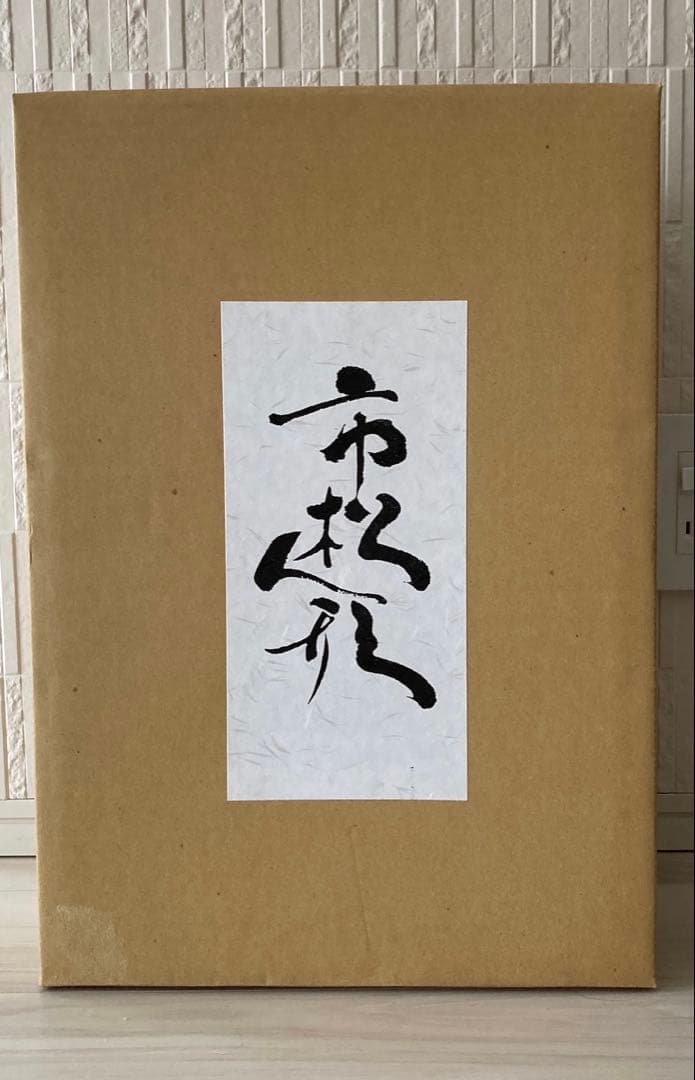 市松人形